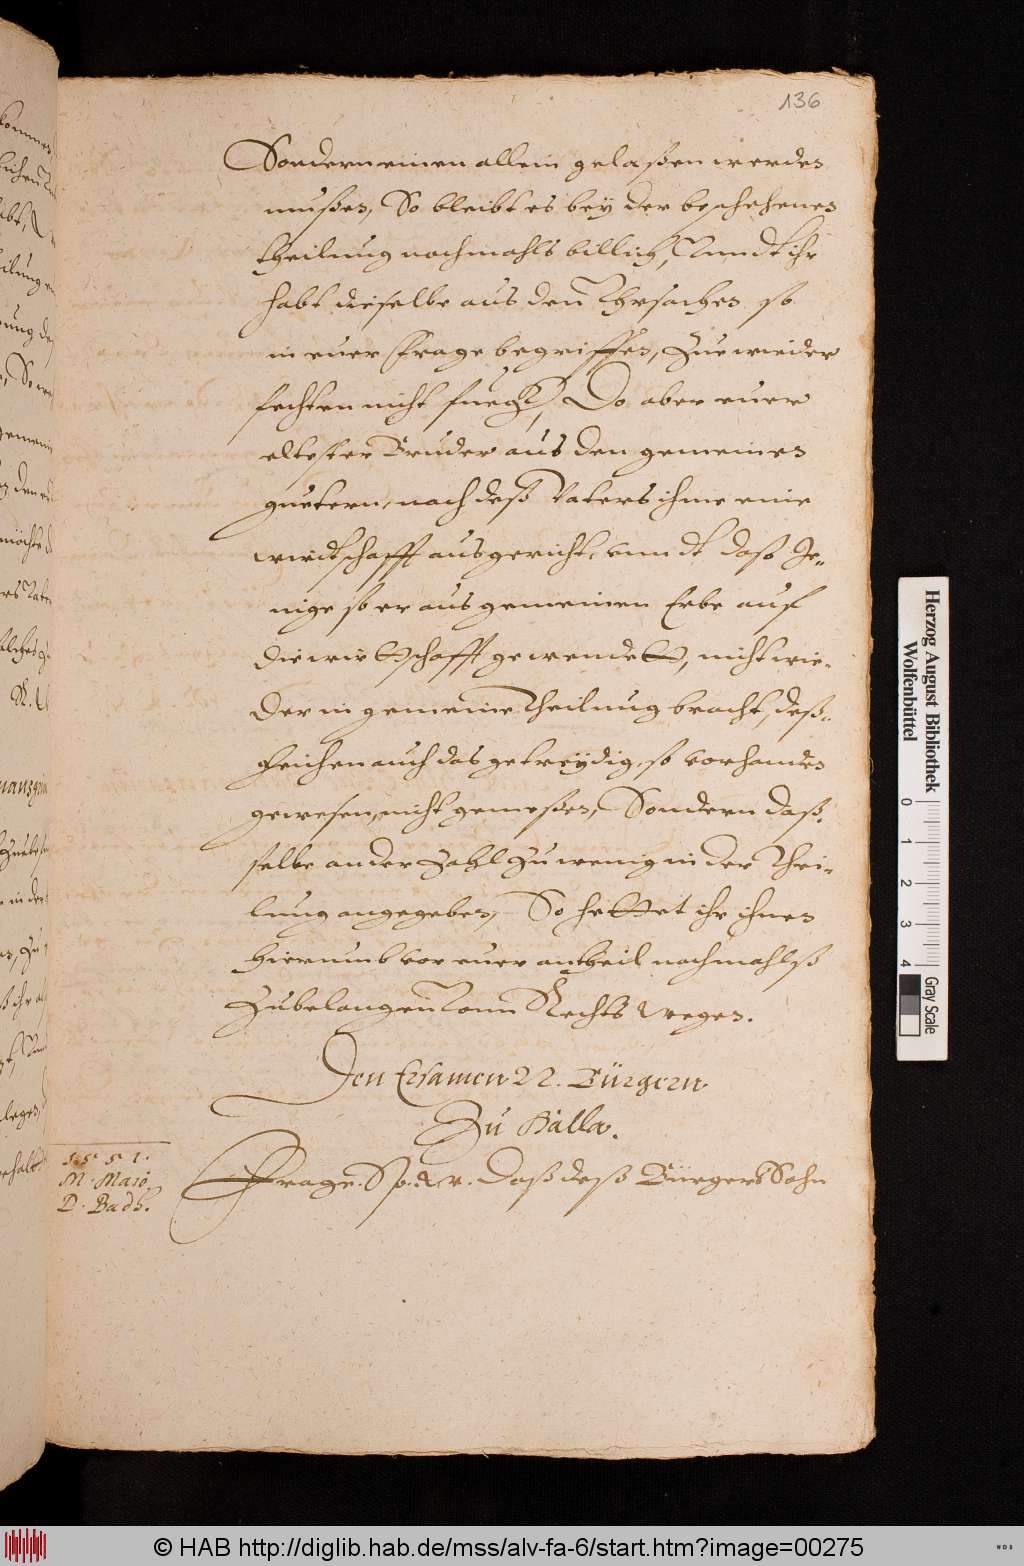 136
Sondern einen allein gelaßen werden
mußen, So bleibt es bey der beschehenen
theilung nochmahls billich, Unndt ihr
habt dieselbe aus den Uhrsachen so
in euer Frage begriffen, Zue wieder
fechten nicht fueg, Do aber euer
eltester Bruder aus den gemeinen
guetern, nach deß Vaters ihme eine
wirdtschafft ausgericht, unndt daß Je-
nige so er aus gemeinen Erbe auf
die wirttschafft gewendett, nicht wie-
der in gemeine Theilung bracht, deß-
gleichen auch das getreydig, so vorhanden
gewesen, nicht gemeßen, Sondern daß-
selbe an der Zahl Zu wenig in der Thei-
lung angegeben, So hettet ihr ihnen
hierumb vor euer antheil nochmahlß
Zubelangen Vonn Rechts wegen.
Den Ersamen N. Bürgern
Zu Halla.
1551.
M. Maio
D. Badh.
Frage. Sp. &c. Daß deß Bürgers Sohn
Herzog August Bibliothek
Wolfenbüttel
0 1 2 3 4
Gray Scale
© HAB http://diglib.hab.de/mss/alv-fa-6/start.htm?image=00275
WDB